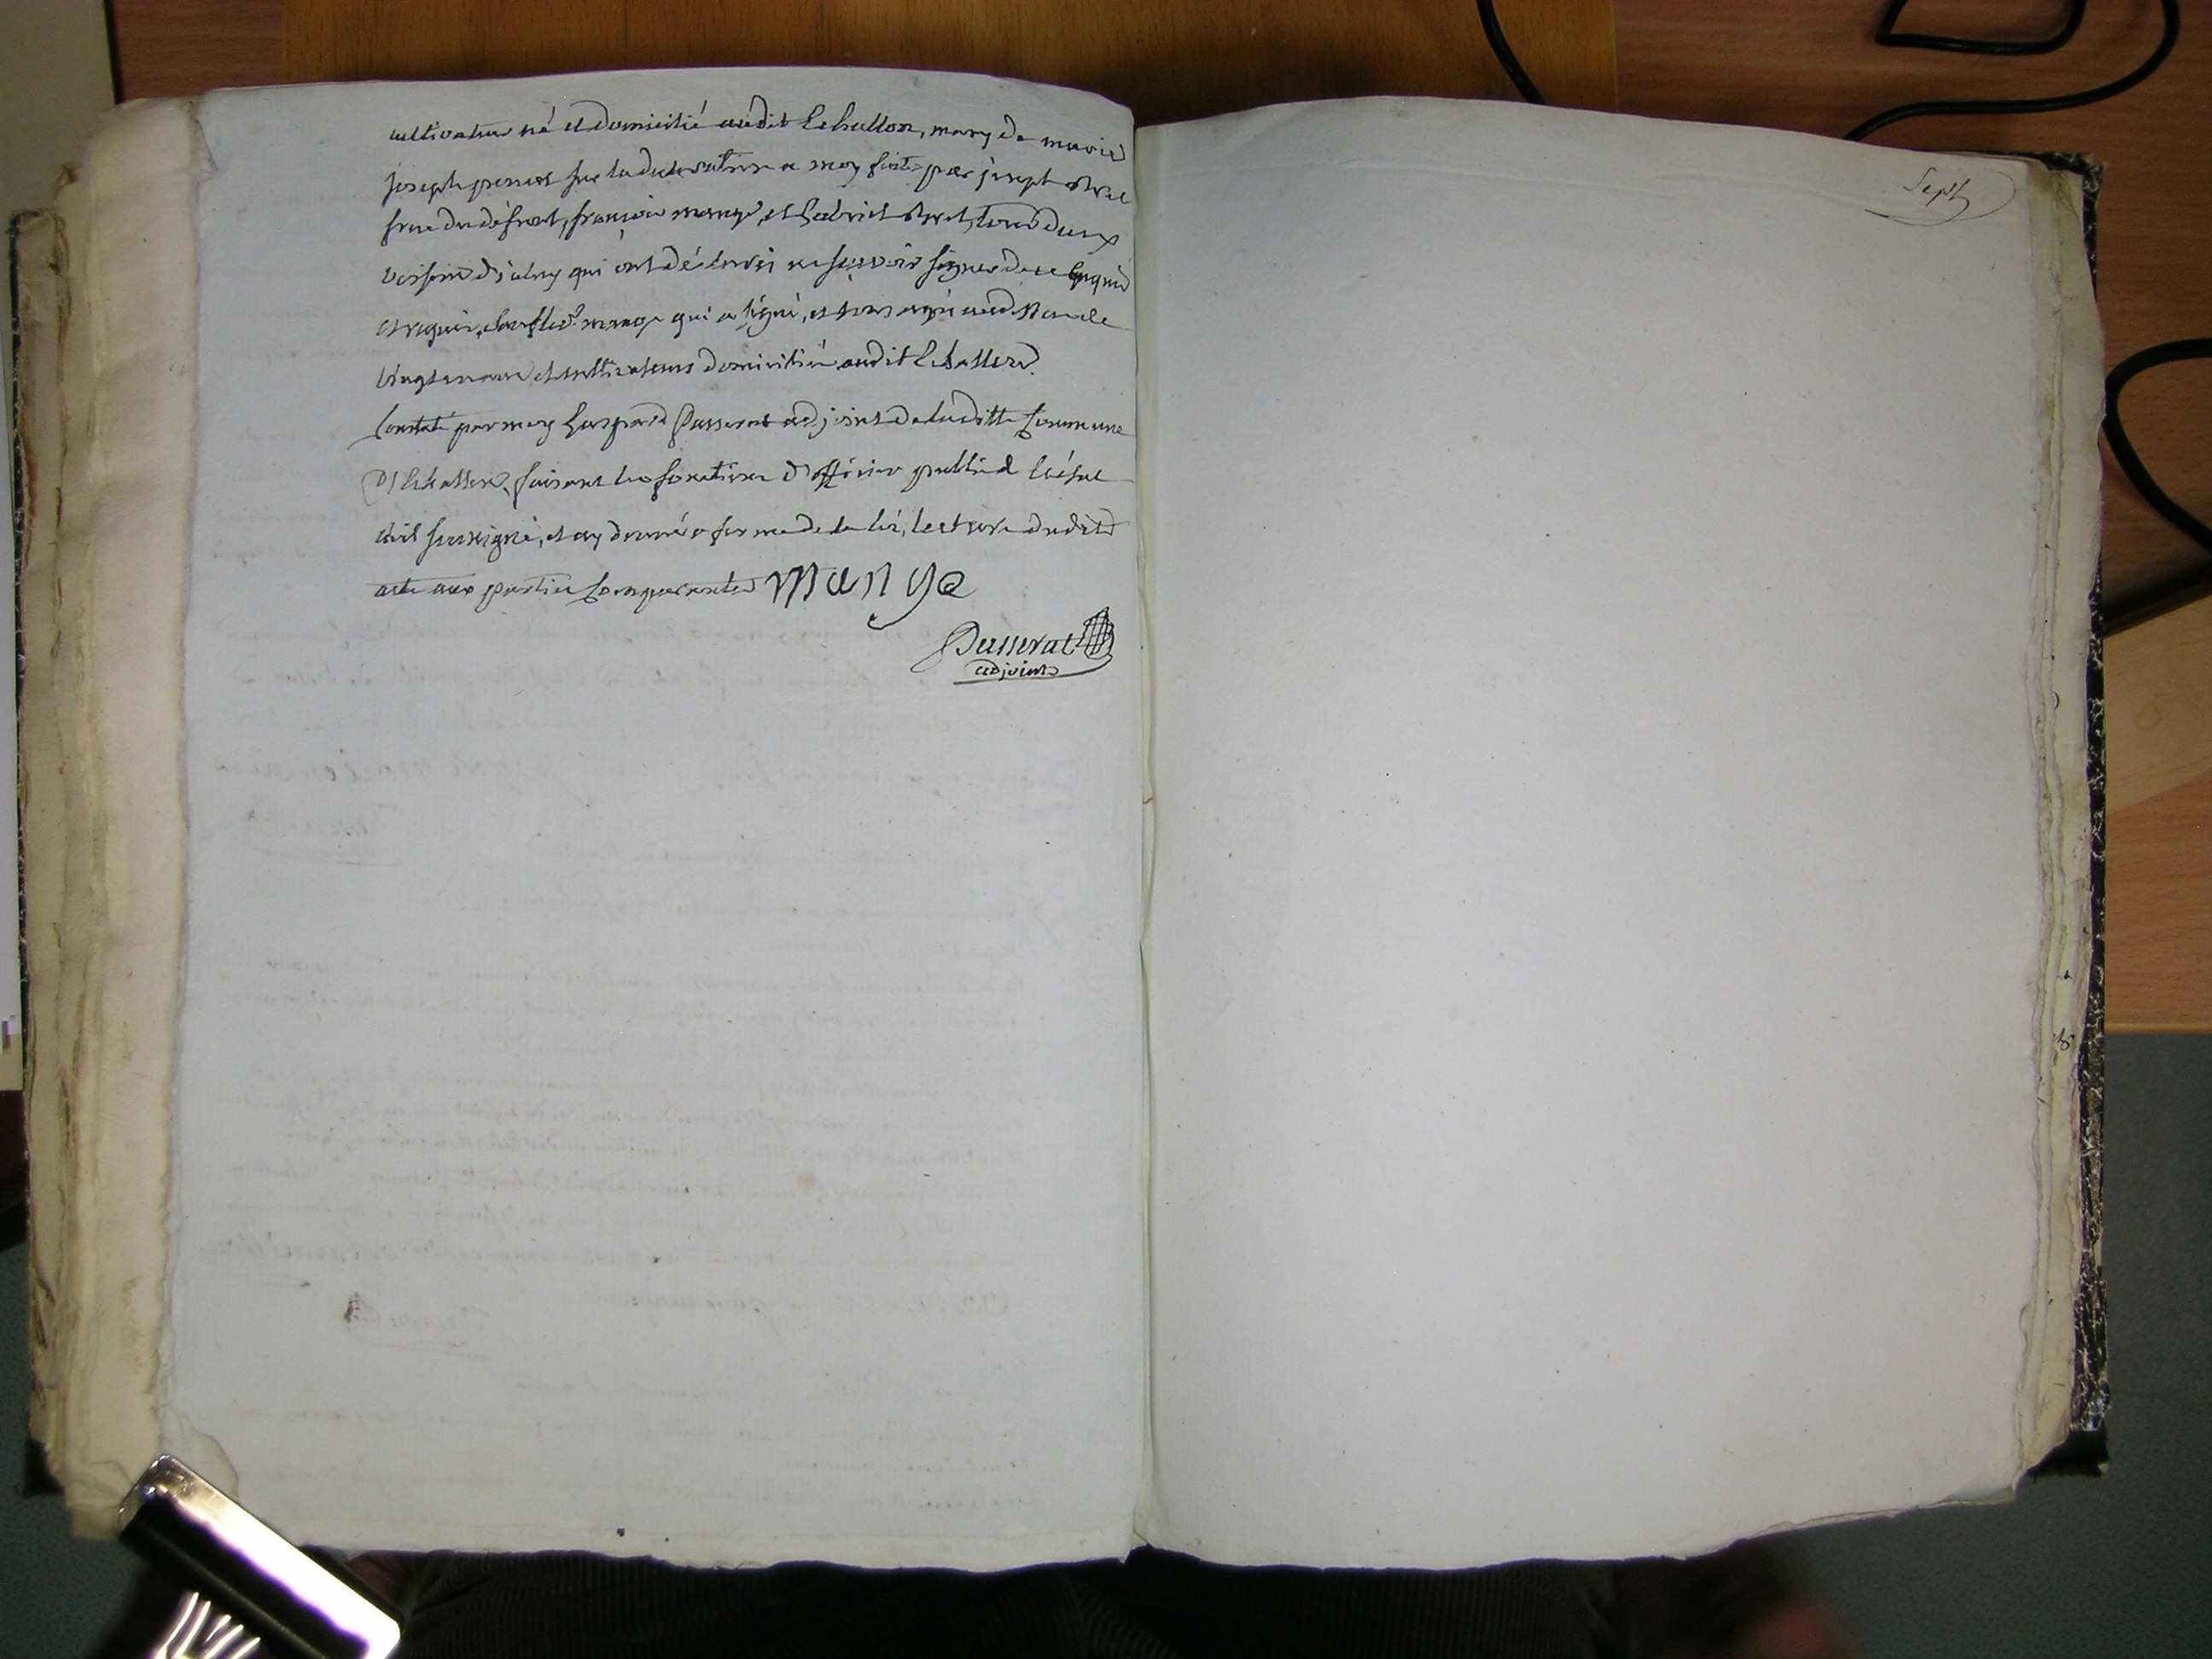 cultivateur né et domicilié audit Echallon, mary de marie
joseph perret sur la declaration a moy faite par joseph
frere du défunt, françois mange, et Gabriel tous deux
voisins d'iceluy qui ont déclarés ne sçavoir signer de ce enquis
et requis, sauf led. mange qui a signé, et tous
cultivateurs domiciliés audit Echallon
Constaté par moy Gaspard Passerat adjoint de laditte Commune
d'Echallon, faisant les fonctions d'officier public de l'état
civil soussigné, et ay donné a forme de la loi, lecture dudit
acte aux parties comparantes Mange
Passerat
adjoint
Sept